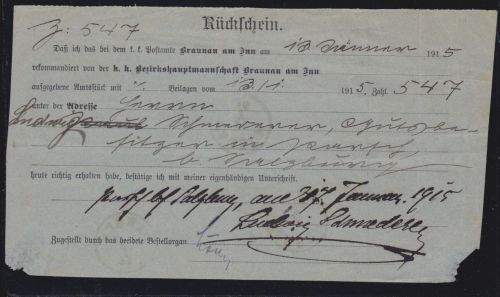 Z: 547
Rückschein.
Daß ich das bei dem k. k. Postamte Braunau am Inn am 13. Jänner 1915
rekommandiert von der k. k. Bezirkshauptmannschaft Braunau am Inn
aufgegebene Amtsstück mit % Beilagen vom 13. 1. 1915, Zahl. 547
unter der Adresse Herrn
Ludwig Schmederer, Gutsbe-
sitzer in Parsch
b. Salzburg
heute richtig erhalten habe, bestätige ich mit meiner eigenhändigen Unterschrift.
Parsch bei Salzburg, am Januar 1915
Ludwig Schmederer
Zugestellt durch das beeidete Bestellorgan